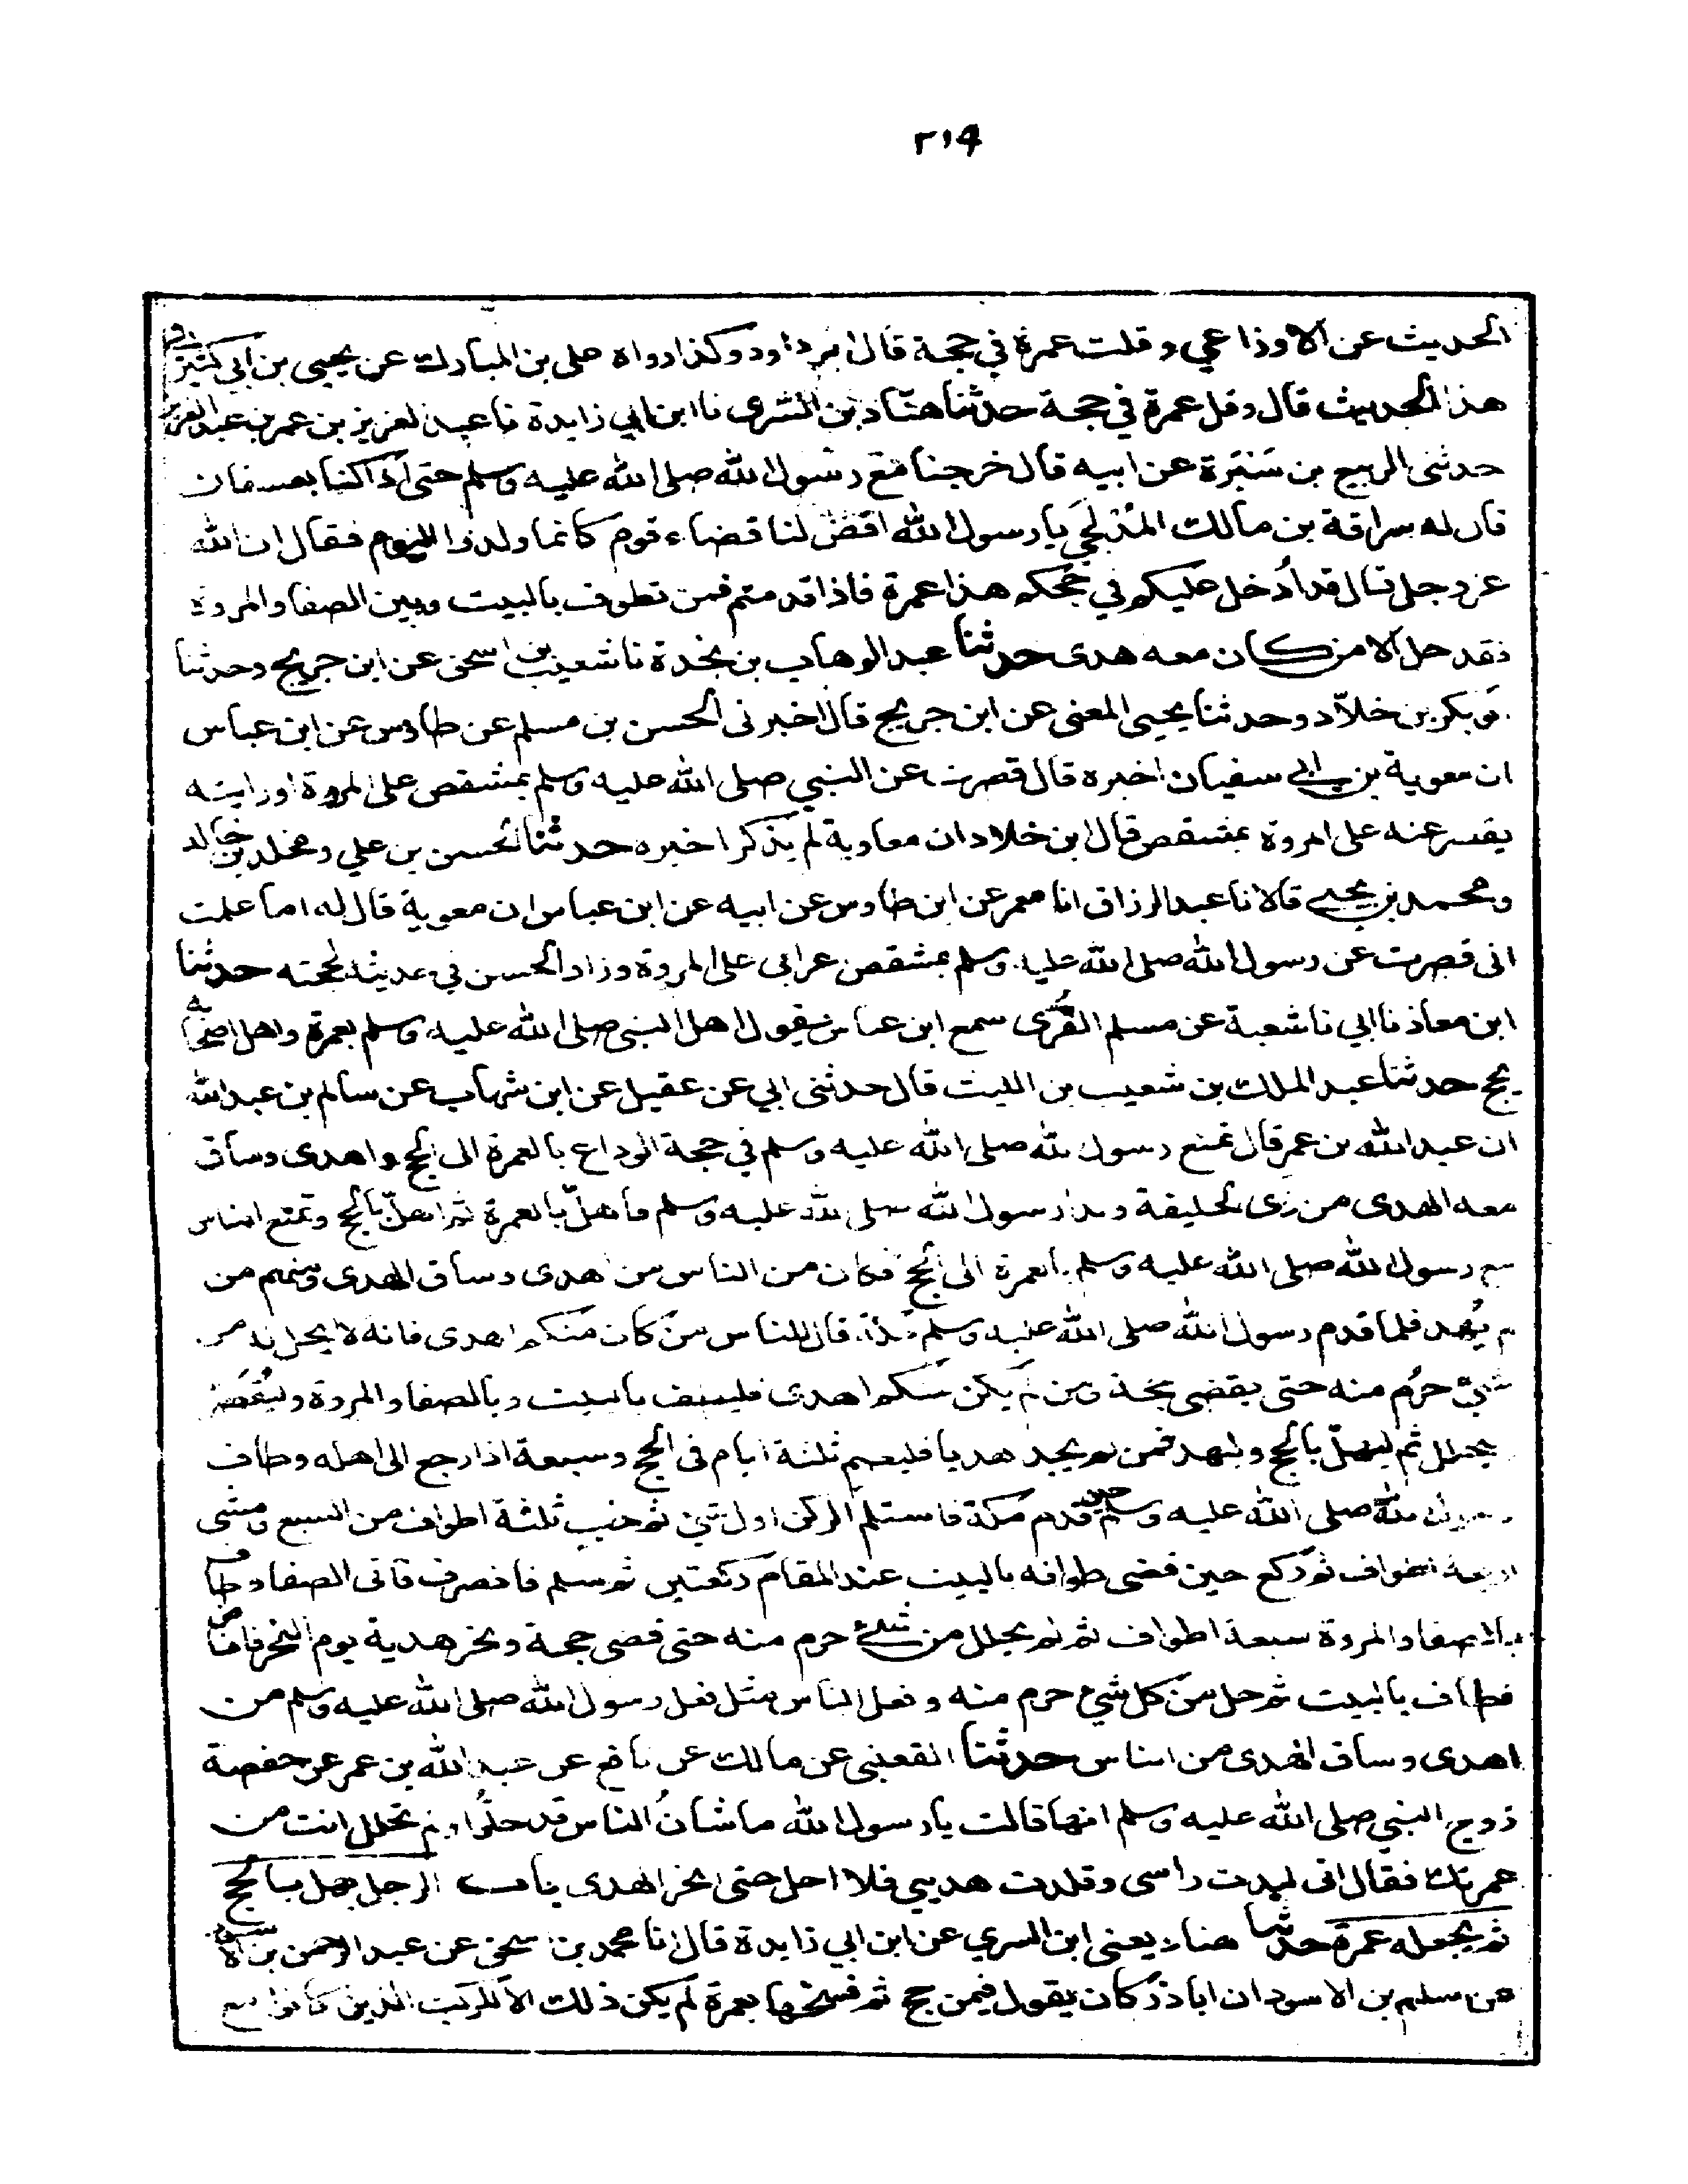 ٣١٤
الحديث عن الاوزاعي وقلت عمرة في حجة قال ابو داود وكذا رواه علي بن المبارك عن يحيى بن ابي كثير في
هذا الحديث قال وقل عمرة في حجة حدثنا هناد بن السَّري نا ابن ابي زايدة نا عبد العزيز بن عمر بن عبد العزيز
حدثنى الربيع بن سَبْرَة عن ابيه قال خرجنا مع رسول الله صلى الله عليه وسلم حتى اذا كنا بعسفان
قال له سراقة بن مالك المُدْلِجي يا رسول الله اقض لنا قضاء قوم كانما ولدوا اليوم فقال ان الله
عز وجل قد اَدخل عليكم في حجكم هذا عمرة فاذا قدمتم فمن تطوف بالبيت وبين الصفا والمروة
فقد حل الا من كان معه هدى حدثنا عبد الوهاب بن نجدة نا شعيب بن اسحق عن ابن جريج وحدثنا
ابو بكر بن خلاّد وحدثنا يحيى المعنى عن ابن جريج قال اخبرنى الحسن بن مسلم عن طاوس عن ابن عباس
ان معوية بن ابي سفيان اخبره قال قصرت عن النبي صلى الله عليه وسلم بمشقص على المروة او رايته
يقصر عنه على المروة بمشقص قال ابن خلاد ان معاوية لم يذكر اخبره حدثنا الحسن بن علي ومخلد بن خالد
ومحمد بن يحيى قالا نا عبد الرزاق انا معمر عن ابن طاوس عن ابيه عن ابن عباس ان معوية قال له اما علمت
انى قصرت عن رسول الله صلى الله عليه وسلم بمشقص عرابي على المروة وزاد الحسن في حديثه لحجته حدثنا
ابن معاذ نا ابي نا شعبة عن مسلم القُرّى سمع ابن عباس يقول اهل النبى صلى الله عليه وسلم بعمرة واهل اصحابه
بحج حدثنا عبد الملك بن شعيب بن الليث قال حدثنى ابي عن عقيل عن ابن شهاب عن سالم بن عبد الله
ان عبد الله بن عمر قال تمتع رسول الله صلى الله عليه وسلم في حجة الوداع بالعمرة الى الحج واهدى وساق
معه الهدى من ذى الحليفة وبدا رسول الله صلى الله عليه وسلم فاهلّ بالعمرة ثم اهلّ بالحج وتمتع الناس
مع رسول الله صلى الله عليه وسلم بالعمرة الى الحج فكان من الناس من اهدى وساق الهدى ومنهم من
لم يُهد فلما قدم رسول الله صلى الله عليه وسلم مكة قال للناس من كان منكم اهدى فانه لا يحل له من
شيئ حرُم منه حتى يقضى حجه ومن لم يكن منكم اهدى فليطف بالبيت وبالصفا والمروة وليُقَصّر
وليحلل ثم ليهلّ بالحج وليهد فمن لم يجد هديا فليصم ثلثة ايام في الحج وسبعة اذا رجع الى اهله وطاف
رسول الله صلى الله عليه وسلم حين قدم مكة فاستلم الركن اول شئ ثم خب ثلثة اطواف من السبع ومشى
اربعة اطواف ثم ركع حين قضى طوافه بالبيت عند المقام ركعتين ثم سلم فانصرف فاتى الصفا وطاف
بالصفا والمروة سبعة اطواف ثم لم يحلل من شئ حرم منه حتى قضى حجة ونحر هدية يوم النحر فافاض
فطاف بالبيت ثم حل من كل شئ حرم منه وفعل الناس مثل فعل رسول الله صلى الله عليه وسلم من
اهدى وساق الهدى من الناس حدثنا القعنبى عن مالك عن نافع عن عبد الله بن عمر عن حفصة
زوج النبي صلى الله عليه وسلم انها قالت يا رسول الله ما شانُ الناس قد حلُّوا ولم تحلل انت من
عمرتك فقال انى لبدت راسى وقلدت هديي فلا احل حتى انحر الهدى باب الرجل يهل بالحج
ثم يجعله عمرة حدثنا هناد يعنى ابن السري عن ابن ابي زايدة قال انا محمد بن اسحق عن عبد الرحمن بن الاسود
عن سليم بن الاسود ان اباذر كان يقول فيمن حج ثم فسخها بعمرة لم يكن ذلك الا للركب الذين كانوا مع